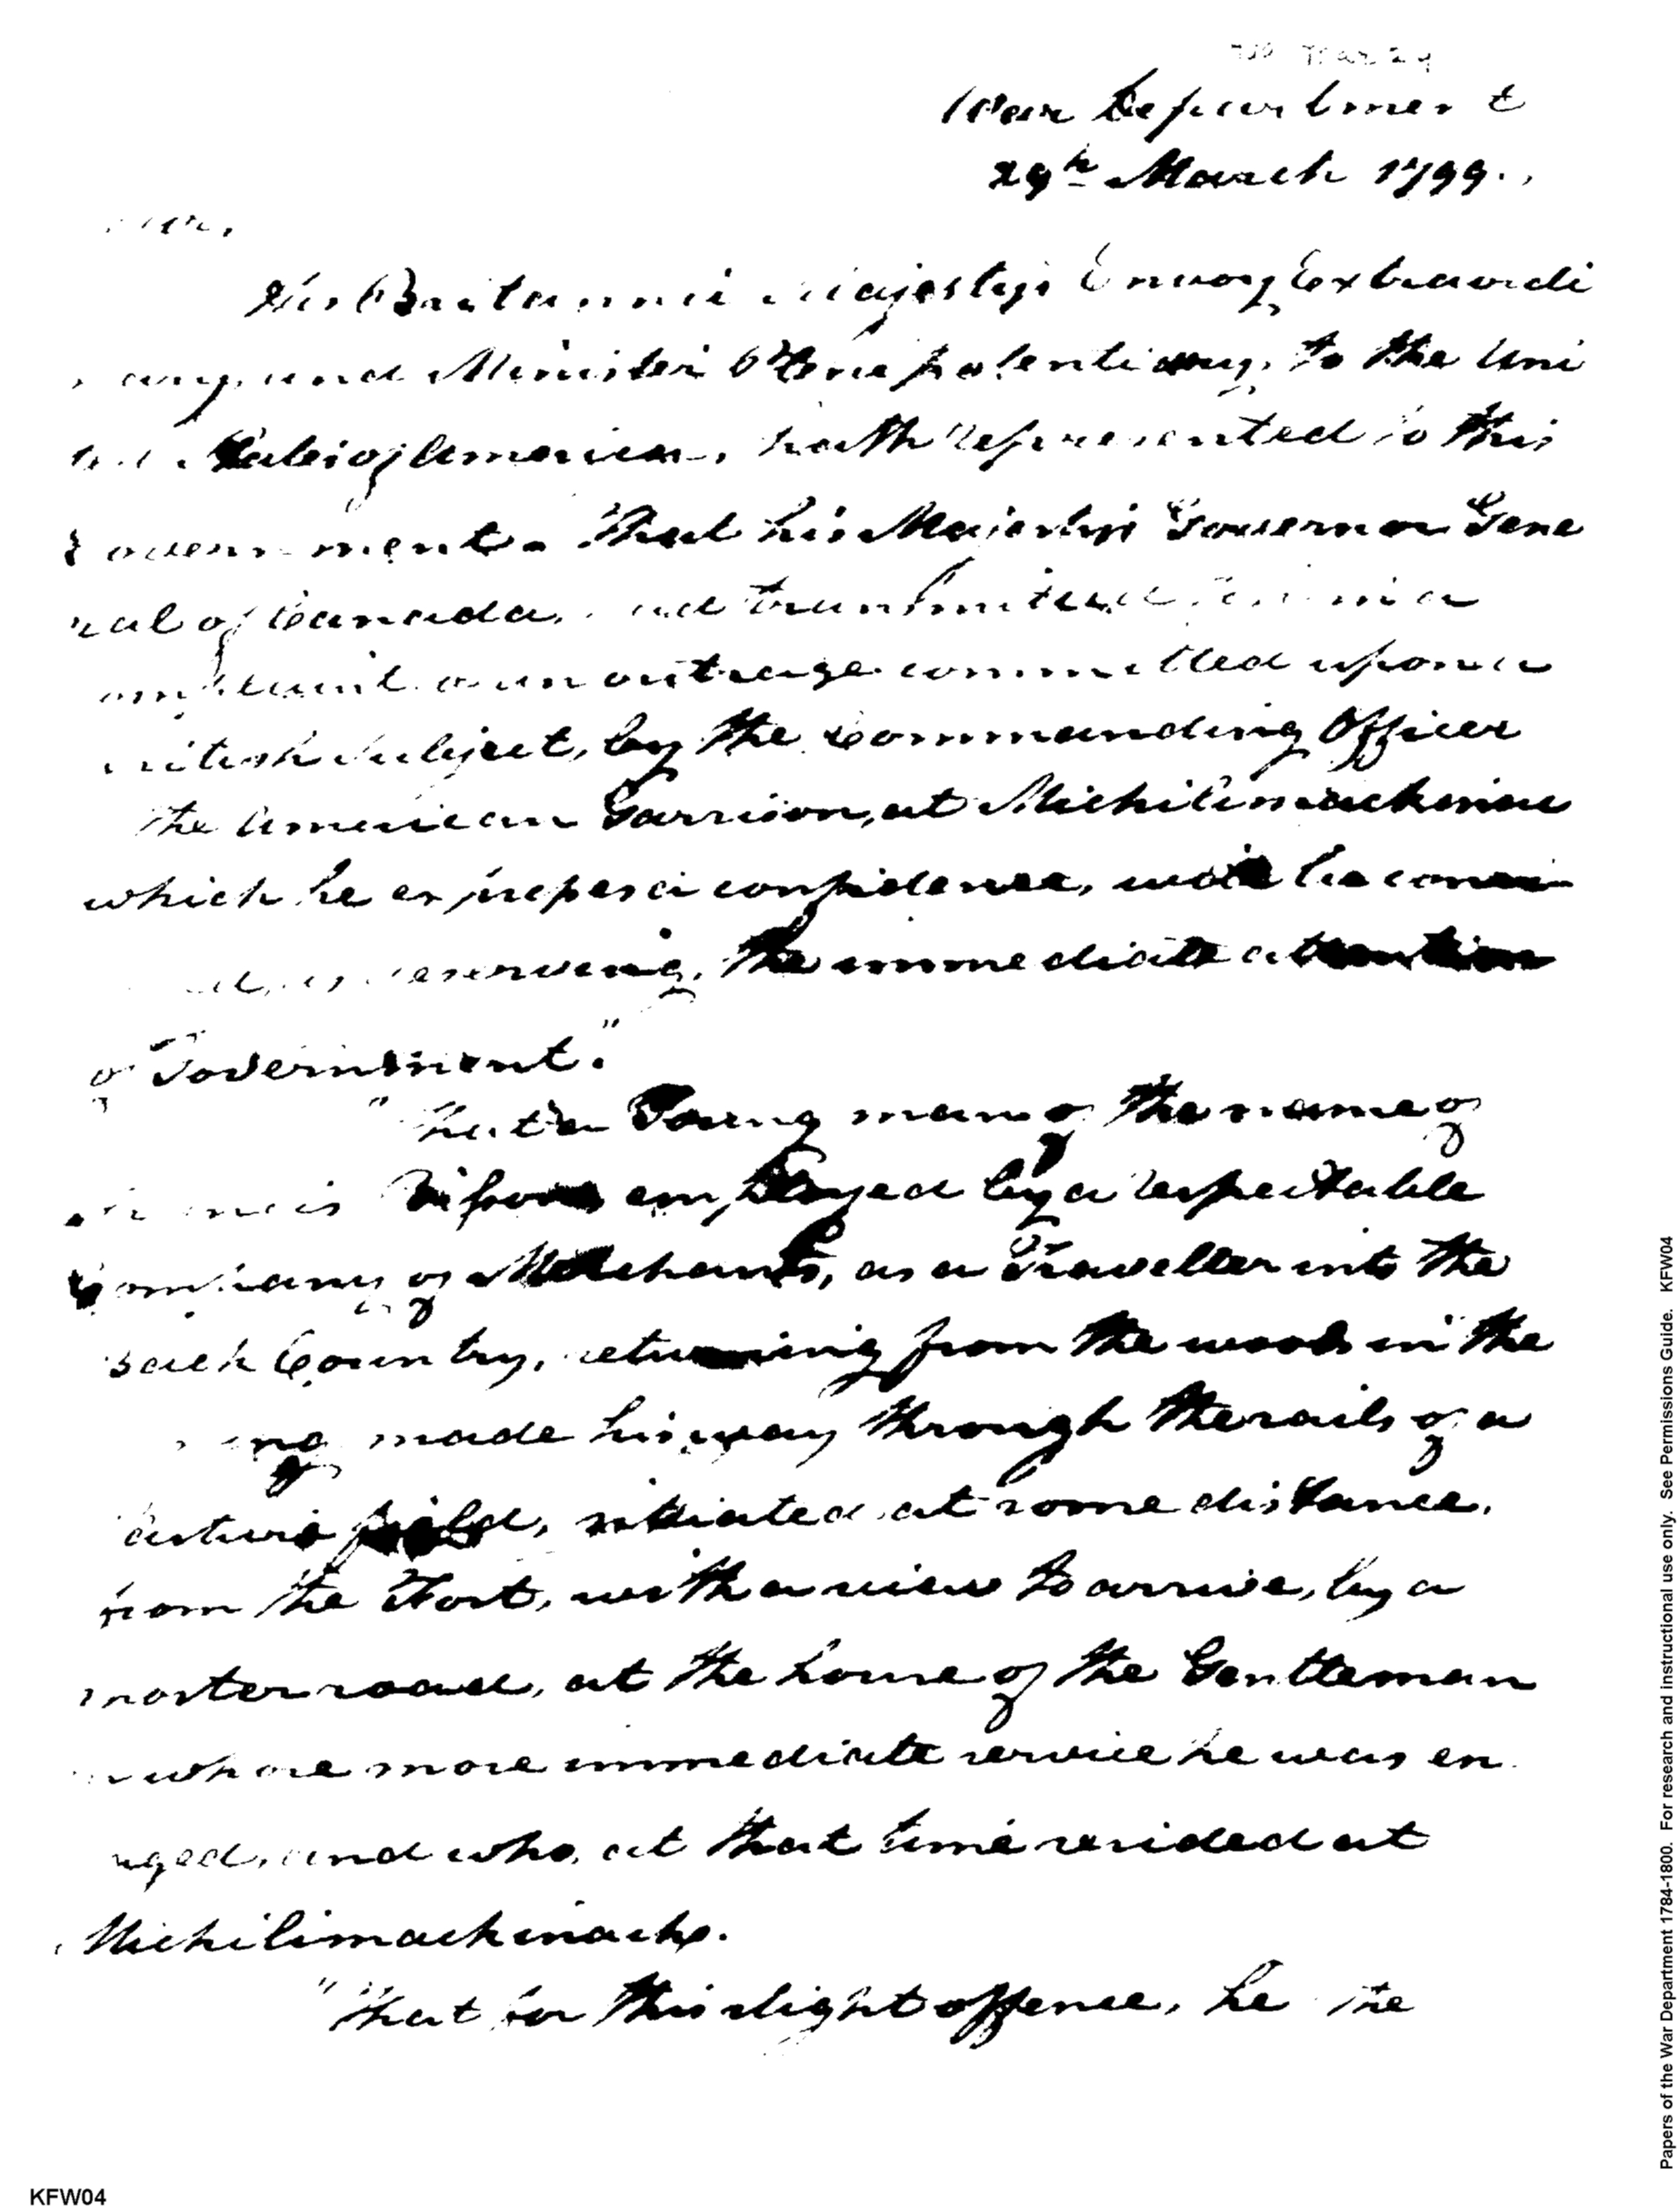 War Department
29th March 1799.
Sir,
His Britannic Majesty's Envoy Extraordi
nary and Minister Plenepotentiary, to the Uni
ted States of America, hath represented to this
Government. That his Majesty's Governor Gene
ral of Canada, had transmitted
complaint an outrage committed upon a
British Subject, by the Commanding Officer
the American Garrison, at Michilimackinac
which he expresses a confidence, will be consi
deserving, the immediate attention
of Government."
"That a Young man of the name of
employed by a respectable
Company of Merchants, as a Traveller into the
back Country, returning from the woods in the
made his way through the rails of a
pasture field, situated at some distance,
from the Fort, with a view to arrive, by a
shorter road, at the house of the Gentleman
in whose more immediate service he was en
gaged, and who, at that time resided at
Michilimackinack.
"That for this slight offence, he the
KFW04
Papers of the War Department 1784-1800. For research and instructional use only. See Permissions Guide. KFW04